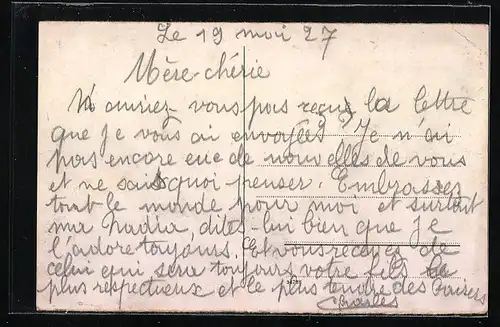 Le 19 mai 27
Mère chérie
N'auriez-vous pas reçue la lettre
que je vous ai envoyée? Je n'ai
pas encore eue de nouvelles de vous
et ne sais quoi penser. Embrassez
tout le monde pour moi et surtout
ma Nadia, dites-lui bien que je
l'adore toujours. Et vous recevez de
celui qui sera toujours votre fils le
plus respectueux et le plus tendre des baisers
Charles